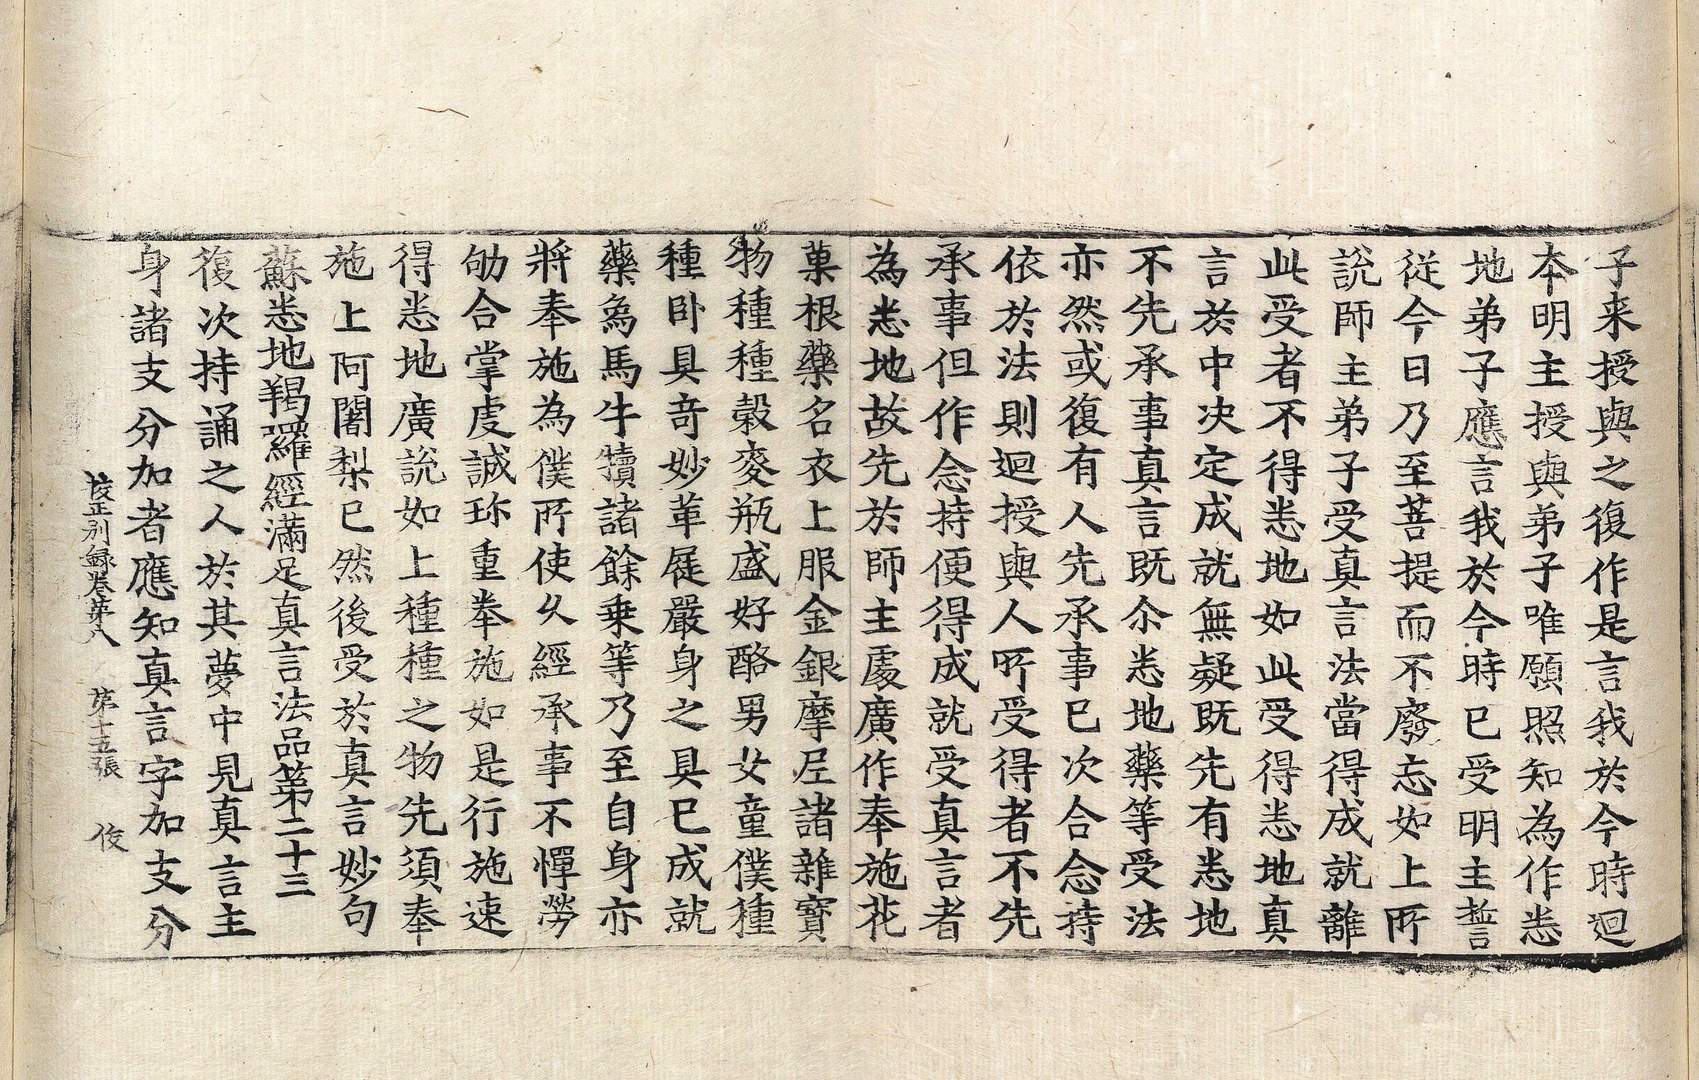 子来授與之復作是言我於今時迴
本明主授與弟子唯願照知為作悉
地弟子應言我於今時已受明主誓
従今日乃至菩提而不廢忘如上所
說師主弟子受真言法當得成就離
此受者不得悉地如此受得悉地真
言於中决定成就無疑既先有悉地
不先承事真言既尒悉地藥等受法
亦然或復有人先承事已次合念持
依於法則迴授與人所受得者不先
承事但作念持便得成就受真言者
為悉地故先於師主處廣作奉施花
菓根藥名衣上服金銀摩尼諸雜寳
物種種穀麥瓶盛好酪男女童僕種
種卧具竒妙革屣嚴身之具已成就
藥烏馬牛犢諸餘乗等乃至自身亦
將奉施為僕所使久經承事不憚勞
劬合掌䖍誠珎重奉施如是行施速
得悉地廣說如上種種之物先須奉
施上阿闍梨已然後受於真言妙句
蘇悉地羯羅經滿足真言法品第二十三
復次持誦之人於其夢中見真言主
身諸支分加者應知真言字加支分
校正别録卷第八 第十五張 俊